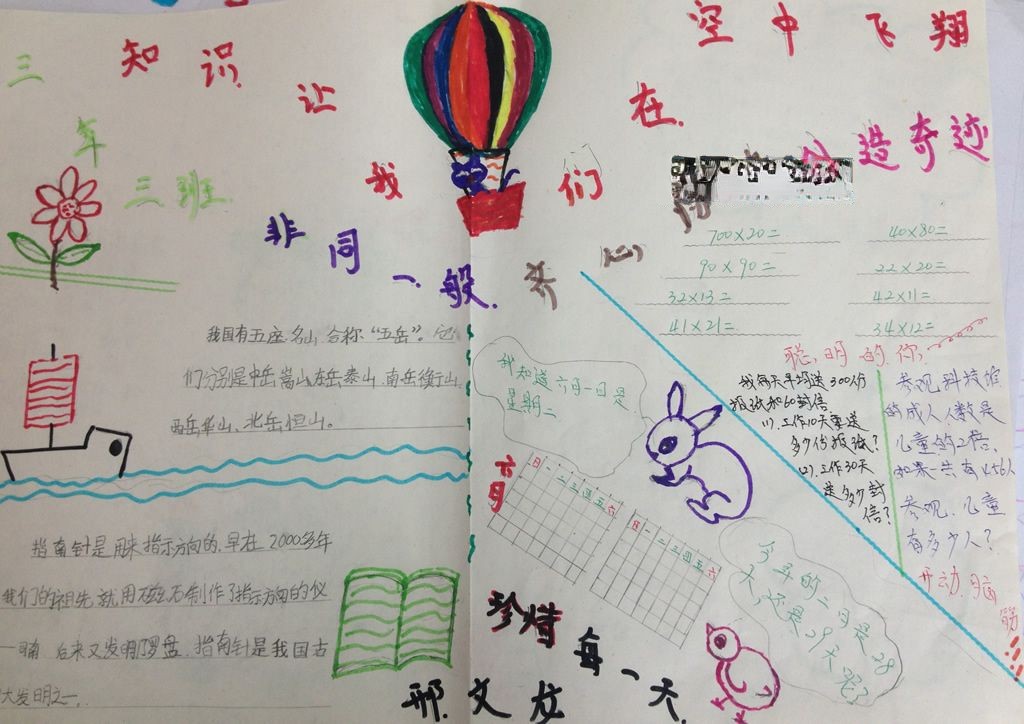 三年
三班
知识让我们在空中飞翔
非同一般
齐心
造奇迹
我国有五座名山,合称“五岳”。它
们分别是中岳嵩山.东岳泰山.南岳衡山.
西岳华山、北岳恒山。
指南针是用来指示方向的.早在2000多年
我们的祖先就用磁石制作了指示方向的仪
后来又发明了罗盘.指南针是我国古
大发明之一.
700×20=
40×80=
90×90=
22×20=
32×13=
42×11=
41×21=
34×12=
聪明的你,
我每天平均送300份
报纸和60封信
(1).工作10天要送
多少份报纸?
(2).工作30天
送多少封
信?
参观科技馆
的成人人数是
儿童的2倍,
如果一共有456人
参观.儿童
有多少人?
开动脑筋
我知道六月一日是
星期二
六月
日一二三四五六
日一二三四五六
今年的二月是28
天,还是29天呢?
珍惜每一天
邢文龙